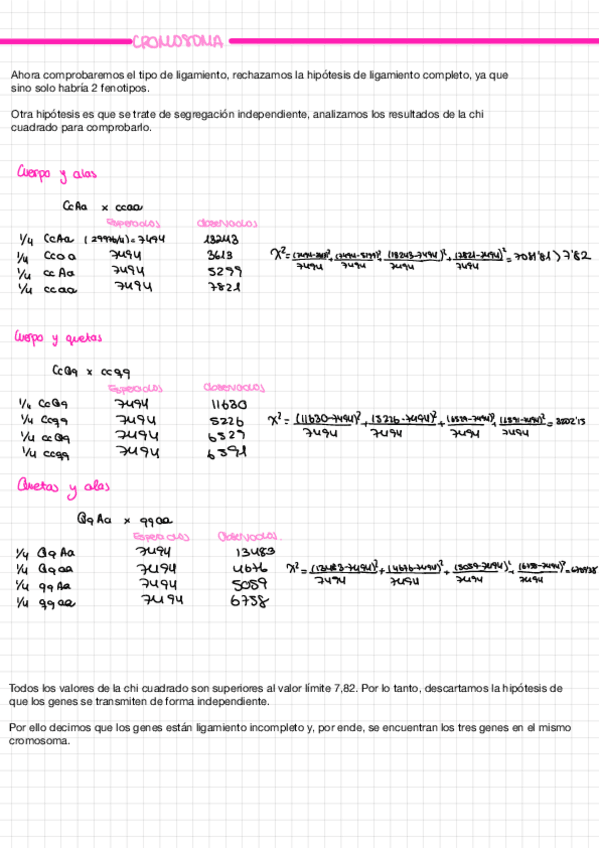 CROMOSOMA
Ahora comprobaremos el tipo de ligamiento, rechazamos la hipótesis de ligamiento completo, ya que
sino solo habría 2 fenotipos.
Otra hipótesis es que se trate de segregación independiente, analizamos los resultados de la chi
cuadrado para comprobarlo.
Cuerpo y alas
CcAa x ccaa
Esperados Observados
1/4 CcAa (29976/4)=7494 13243
1/4 Ccaa 7494 3613
1/4 ccAa 7494 5299
1/4 ccaa 7494 7821
X²= (7494-3613)²/7494 + (7494-5299)²/7494 + (13243-7494)²/7494 + (7821-7494)²/7494 = 7081'81 > 7'82
Cuerpo y quetas
CcQq x ccqq
Esperados Observados
1/4 CcQq 7494 11630
1/4 Ccqq 7494 5226
1/4 ccQq 7494 6529
1/4 ccqq 7494 6591
X²= (11630-7494)²/7494 + (5226-7494)²/7494 + (6529-7494)²/7494 + (6591-7494)²/7494 =
Quetas y alas
QqAa x qqaa
Esperados Observados.
1/4 QqAa 7494 13483
1/4 Qqaa 7494 4676
1/4 qqAa 7494 5059
1/4 qqaa 7494 6758
X²= (13483-7494)²/7494 + (4676-7494)²/7494 + (5059-7494)²/7494 + (6758-7494)²/7494 =
Todos los valores de la chi cuadrado son superiores al valor límite 7,82. Por lo tanto, descartamos la hipótesis de
que los genes se transmiten de forma independiente.
Por ello decimos que los genes están ligamiento incompleto y, por ende, se encuentran los tres genes en el mismo
cromosoma.